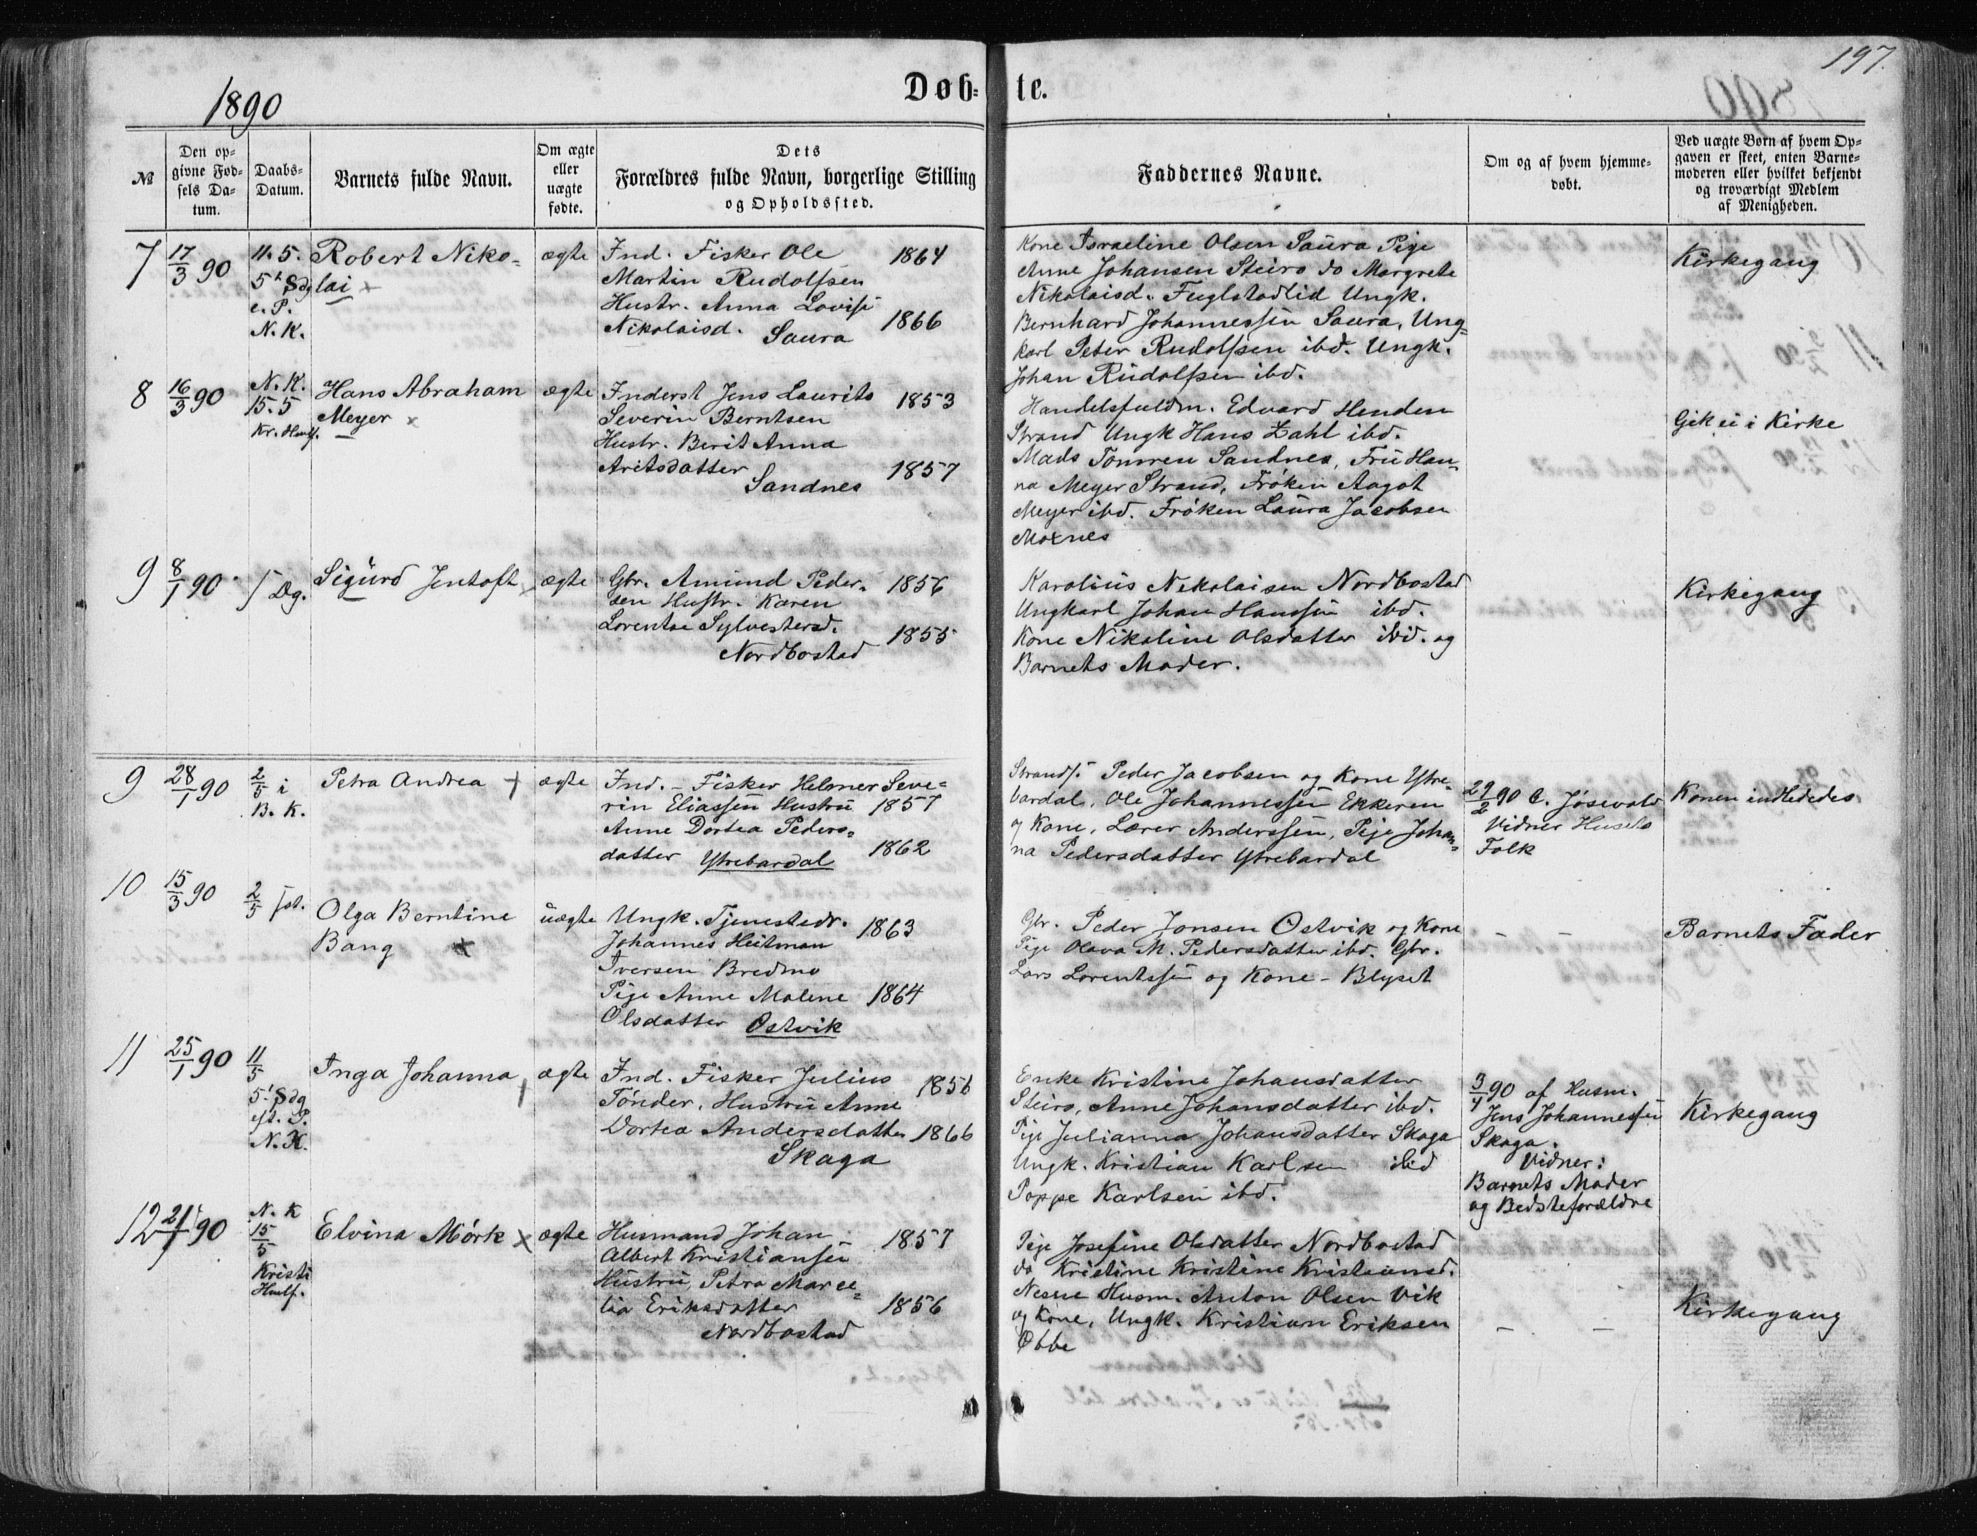 197.
1890
Døb-
te.
№
Den op-
givne Fød-
sels Da-
tum.
Daabs-
Datum.
Barnets fulde Navn.
Om ægte
eller
uægte
fødte.
Dets
Forældres fulde Navn, borgerlige Stilling
og Opholdssted.
Faddernes Navne.
Om og af hvem hjemme-
døbt.
Ved uægte Børn af hvem Op-
gaven er skeet, enten Barne-
moderen eller hvilket bekjendt
og troværdigt Medlem
af Menigheden.
7
17/3 90
11. 5.
5' Sdg
e. P.
N. K.
Robert Niko-
lai
ægte
Ind. Fisker Ole 1864
Martin Rudolfsen
Hustr. Anna Lovise
Nikolaisd. 1866
Saura
Kone Israeline Olsen Saura Pige
Anne Johansen Steiro do Margrete
Nikolaisd. Fuglstadlid Ungk.
Bernhard Johannessen Saura, Ung-
karl Peter Rudolfsen ibd. Ungk.
Johan Rudolfsen ibd.
Kirkegang
8
16/3 90
N. K.
15. 5
Kr. Himlf.
Hans Abraham
Meyer
ægte
Inderst Jens Laurits 1853
Severin Berntsen
Hustr. Berit Anna
Aritsdatter 1857
Sandnes
Handelsfuldm. Edvard Henden
Strand Ungk Hans Zahl ibd.
Mads Tomren Sandnes, Fru Han-
na Meyer Strand, Frøken Aagot
Meyer ibd. Frøken Laura Jacobsen
Moxnes
Gik ei i Kirke
9
8/1 90
Sigurd Jentoft
ægte
Gbr. Amund Peder- 1856
sen Hustr. Karen
Lorentse Sylvestersd. 1855
Nordbostad
Karolius Nikolaisen Nordbostad
Ungkarl Johan Hanssen ibd.
Kone Nikoline Olsdatter ibd. og
Barnets Moder.
Kirkegang
9
28/1 90
2/5 i
B. K.
Petra Andrea
ægte
Ind. - Fisker Helmer Seve-
rin Eliassen Hustru 1857
Anne Dortea Peders-
datter Ytrebardal 1862
Strands. Peder Jacobsen og Kone Ytre-
bardal, Ole Johannessen Ekkeren
og Kone, Lærer Anderssen, Pige Johan-
na Pedersdatter Ytrebardal
29/2 90 C. Jøsevold
Vidner Husets
Folk
Konen indlededes
10
15/3 90
2/5 fst.
Olga Berntine
Bang
uægte
Ungk. Tjenestedr. 1863
Johannes Heitman
Iversen Bredmo
Pige Anne Malene 1864
Olsdatter Østvik
Gbr. Peder Jonsen Østvik og Kone
Pige Olava M. Pedersdatter ibd. Gbr.
Lars Lorentssen og Kone - Blyset
- -
Barnets Fader
11
25/1 90
11/5
5' Sdg
eft. P.
N. K.
Inga Johanna
ægte
Ind. Fisker Julius 1856
Tønder, Hustru Anne
Dortea Andersdatter 1866
Skaga
Enke Kristine Johansdatter
Steiro, Anne Johansdatter ibd.
Pige Julianna Johansdatter Skaga
Ungk. Kristian Karlsen ibid
Poppe Karlsen ibd.
3/4 90 af Husm.
Jens Johannessen
Skaga.
Vidner:
Barnets Moder
og Bedsteforældre
Kirkegang
12
21/1 90
N. K
15/5
Kristi
Himlf.
Elvina Mörk
ægte
Husmand Johan 1857
Albert Kristiansen
Hustru Petra Marce-
lia Eriksdatter 1856
Nordbostad
Pige Josefine Olsdatter Nordbostad
do Kristine Kristine Kristiansd.
Nesne Husm. Anton Olsen Vik
og Kone, Ungk. Kristian Eriksen
Øbbe
- -
Kirkegang